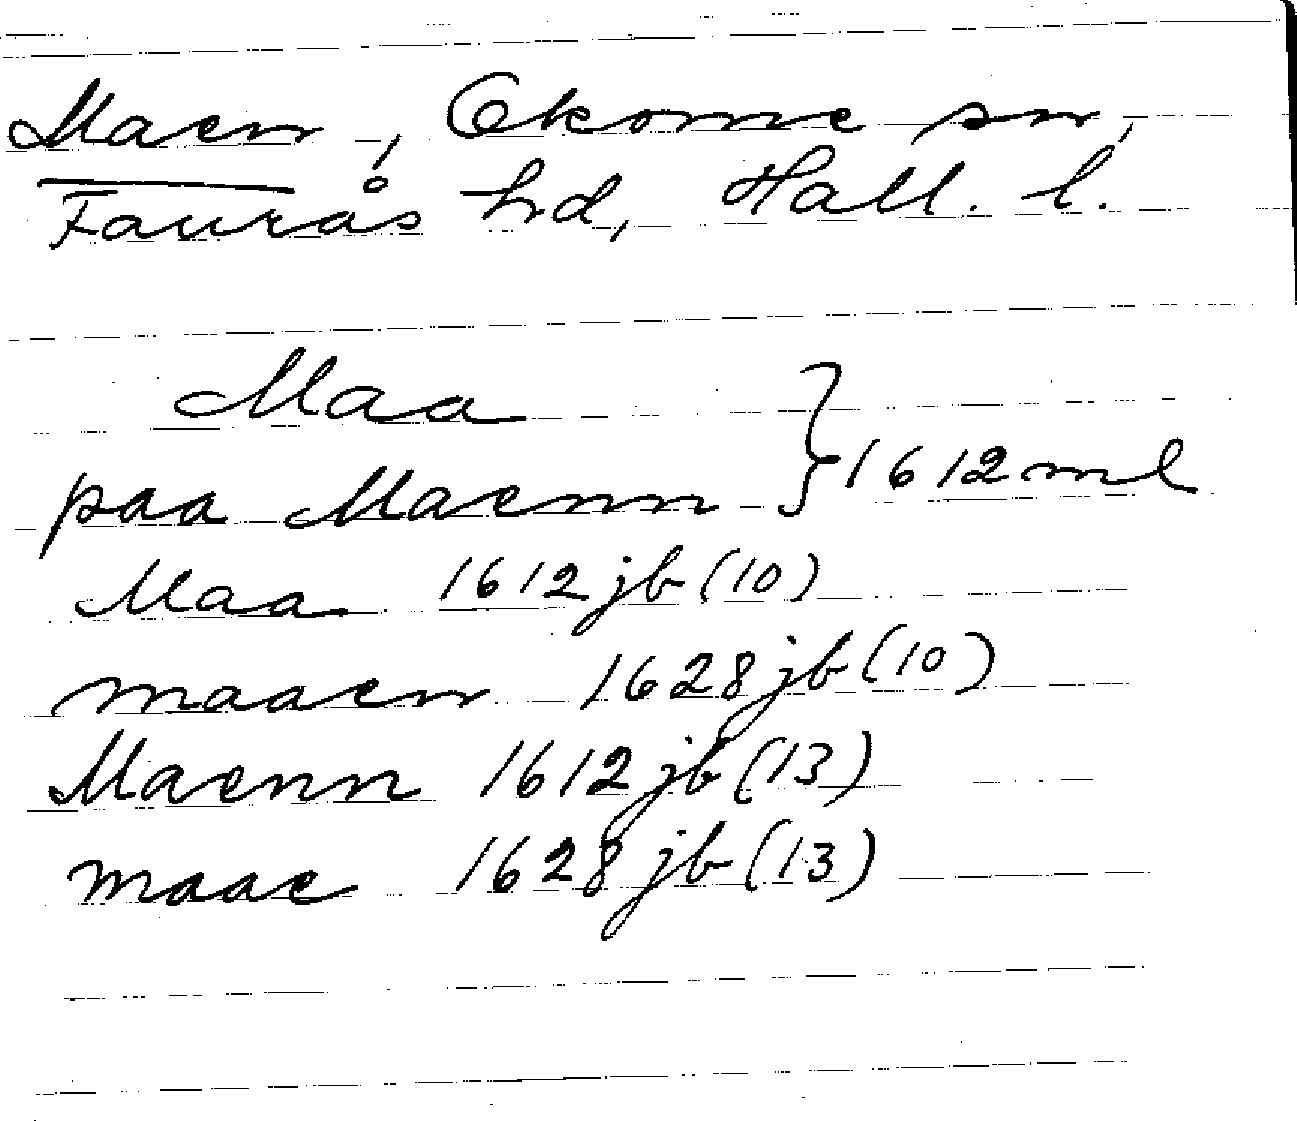 Maen, Okome sn,
Faurås hd, Hall. l.
Maa
paa Maenn } 1612 ml
Maa 1612 jb (10)
maaen 1628 jb (10)
Maenn 1612 jb (13)
maae 1628 jb (13)